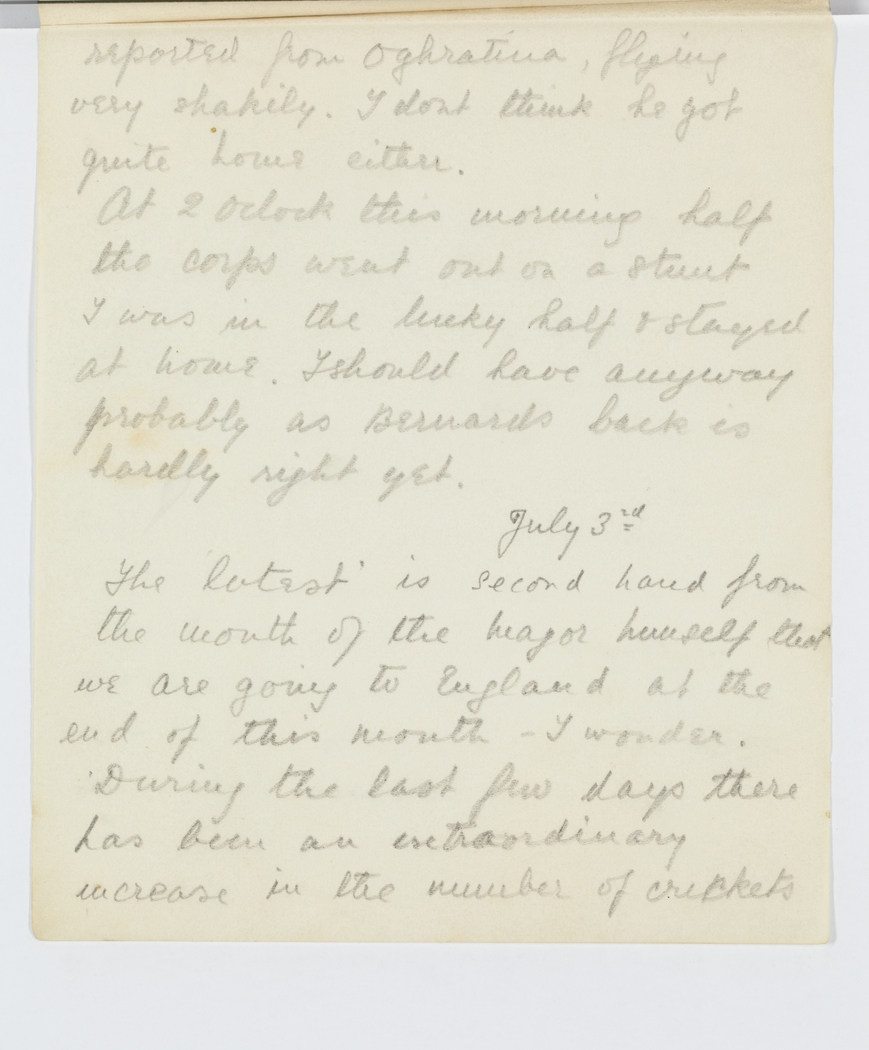 reported from Oghratina, flying
very shakily. I dont think he got
quite home either.
At 2 Oclock this morning half
the corps went out on a stunt
I was in the lucky half & stayed
at home. I should have anyway
probably as Bernards back is
hardly right yet.
July 3rd
The 'latest' is second hand from
the mouth of the Major himself that
we are going to England at the
end of this month - I wonder.
During the last few days there
has been an extraordinary
increase in the number of crickets